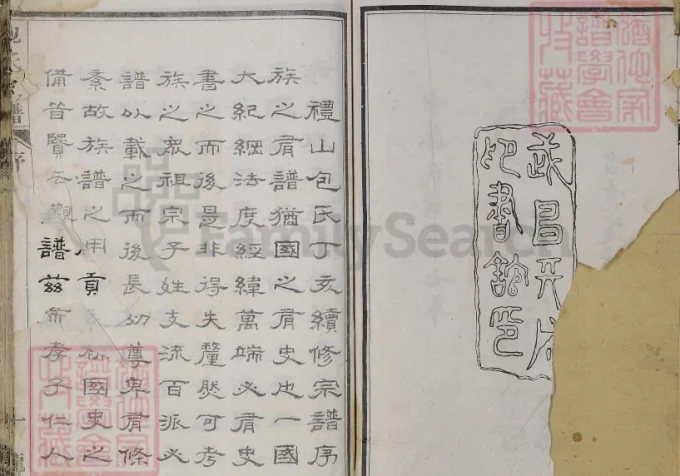 猶他家
譜學會
收藏
武昌
印書館印
禮山包氏丁亥續修宗譜序
族之有譜猶國之有史也一國
大紀綱法度經緯萬端必有史
書之而後是非得失釐然可考
族之衆祖宗子姓支流百派必
譜以載之而後長幼尊卑有條
紊故族譜之用國史之
備昔賢云觀譜茲而孝子仁人
氏宗譜
序
一
猶他家
譜學會
收藏
FamilySearch